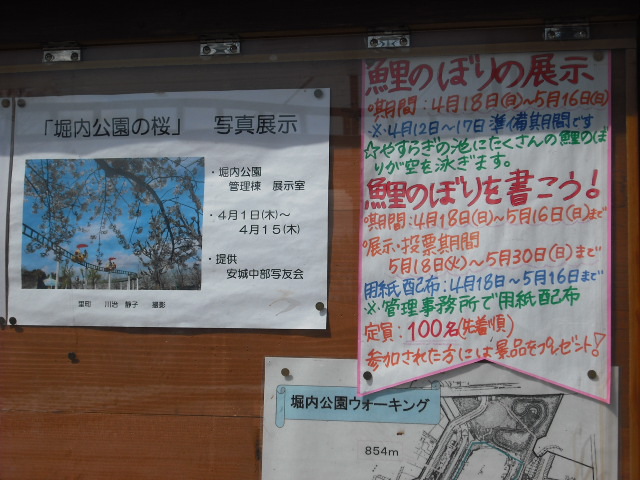 「堀内公園の桜」 写真展示
・堀内公園
管理棟 展示室
・4月1日(木)～
4月15(木)
・提供
安城中部写友会
里町 川治 静子 撮影
鯉のぼりの展示
°期間:4月18日(日)～5月16日(日)
※4月12日～17日 準備期間です
☆やすらぎの池にたくさんの鯉のぼ
りが空を泳ぎます。
鯉のぼりを書こう!
°期間:4月18(日)～5月16(日)まで
°展示・投票期間
5月18(火)～5月30(日)まで
用紙配布:4月18～5月16まで
※管理事務所で用紙配布
定員:100名(先着順)
参加された方には景品をプレゼント!
堀内公園ウォーキング
854m